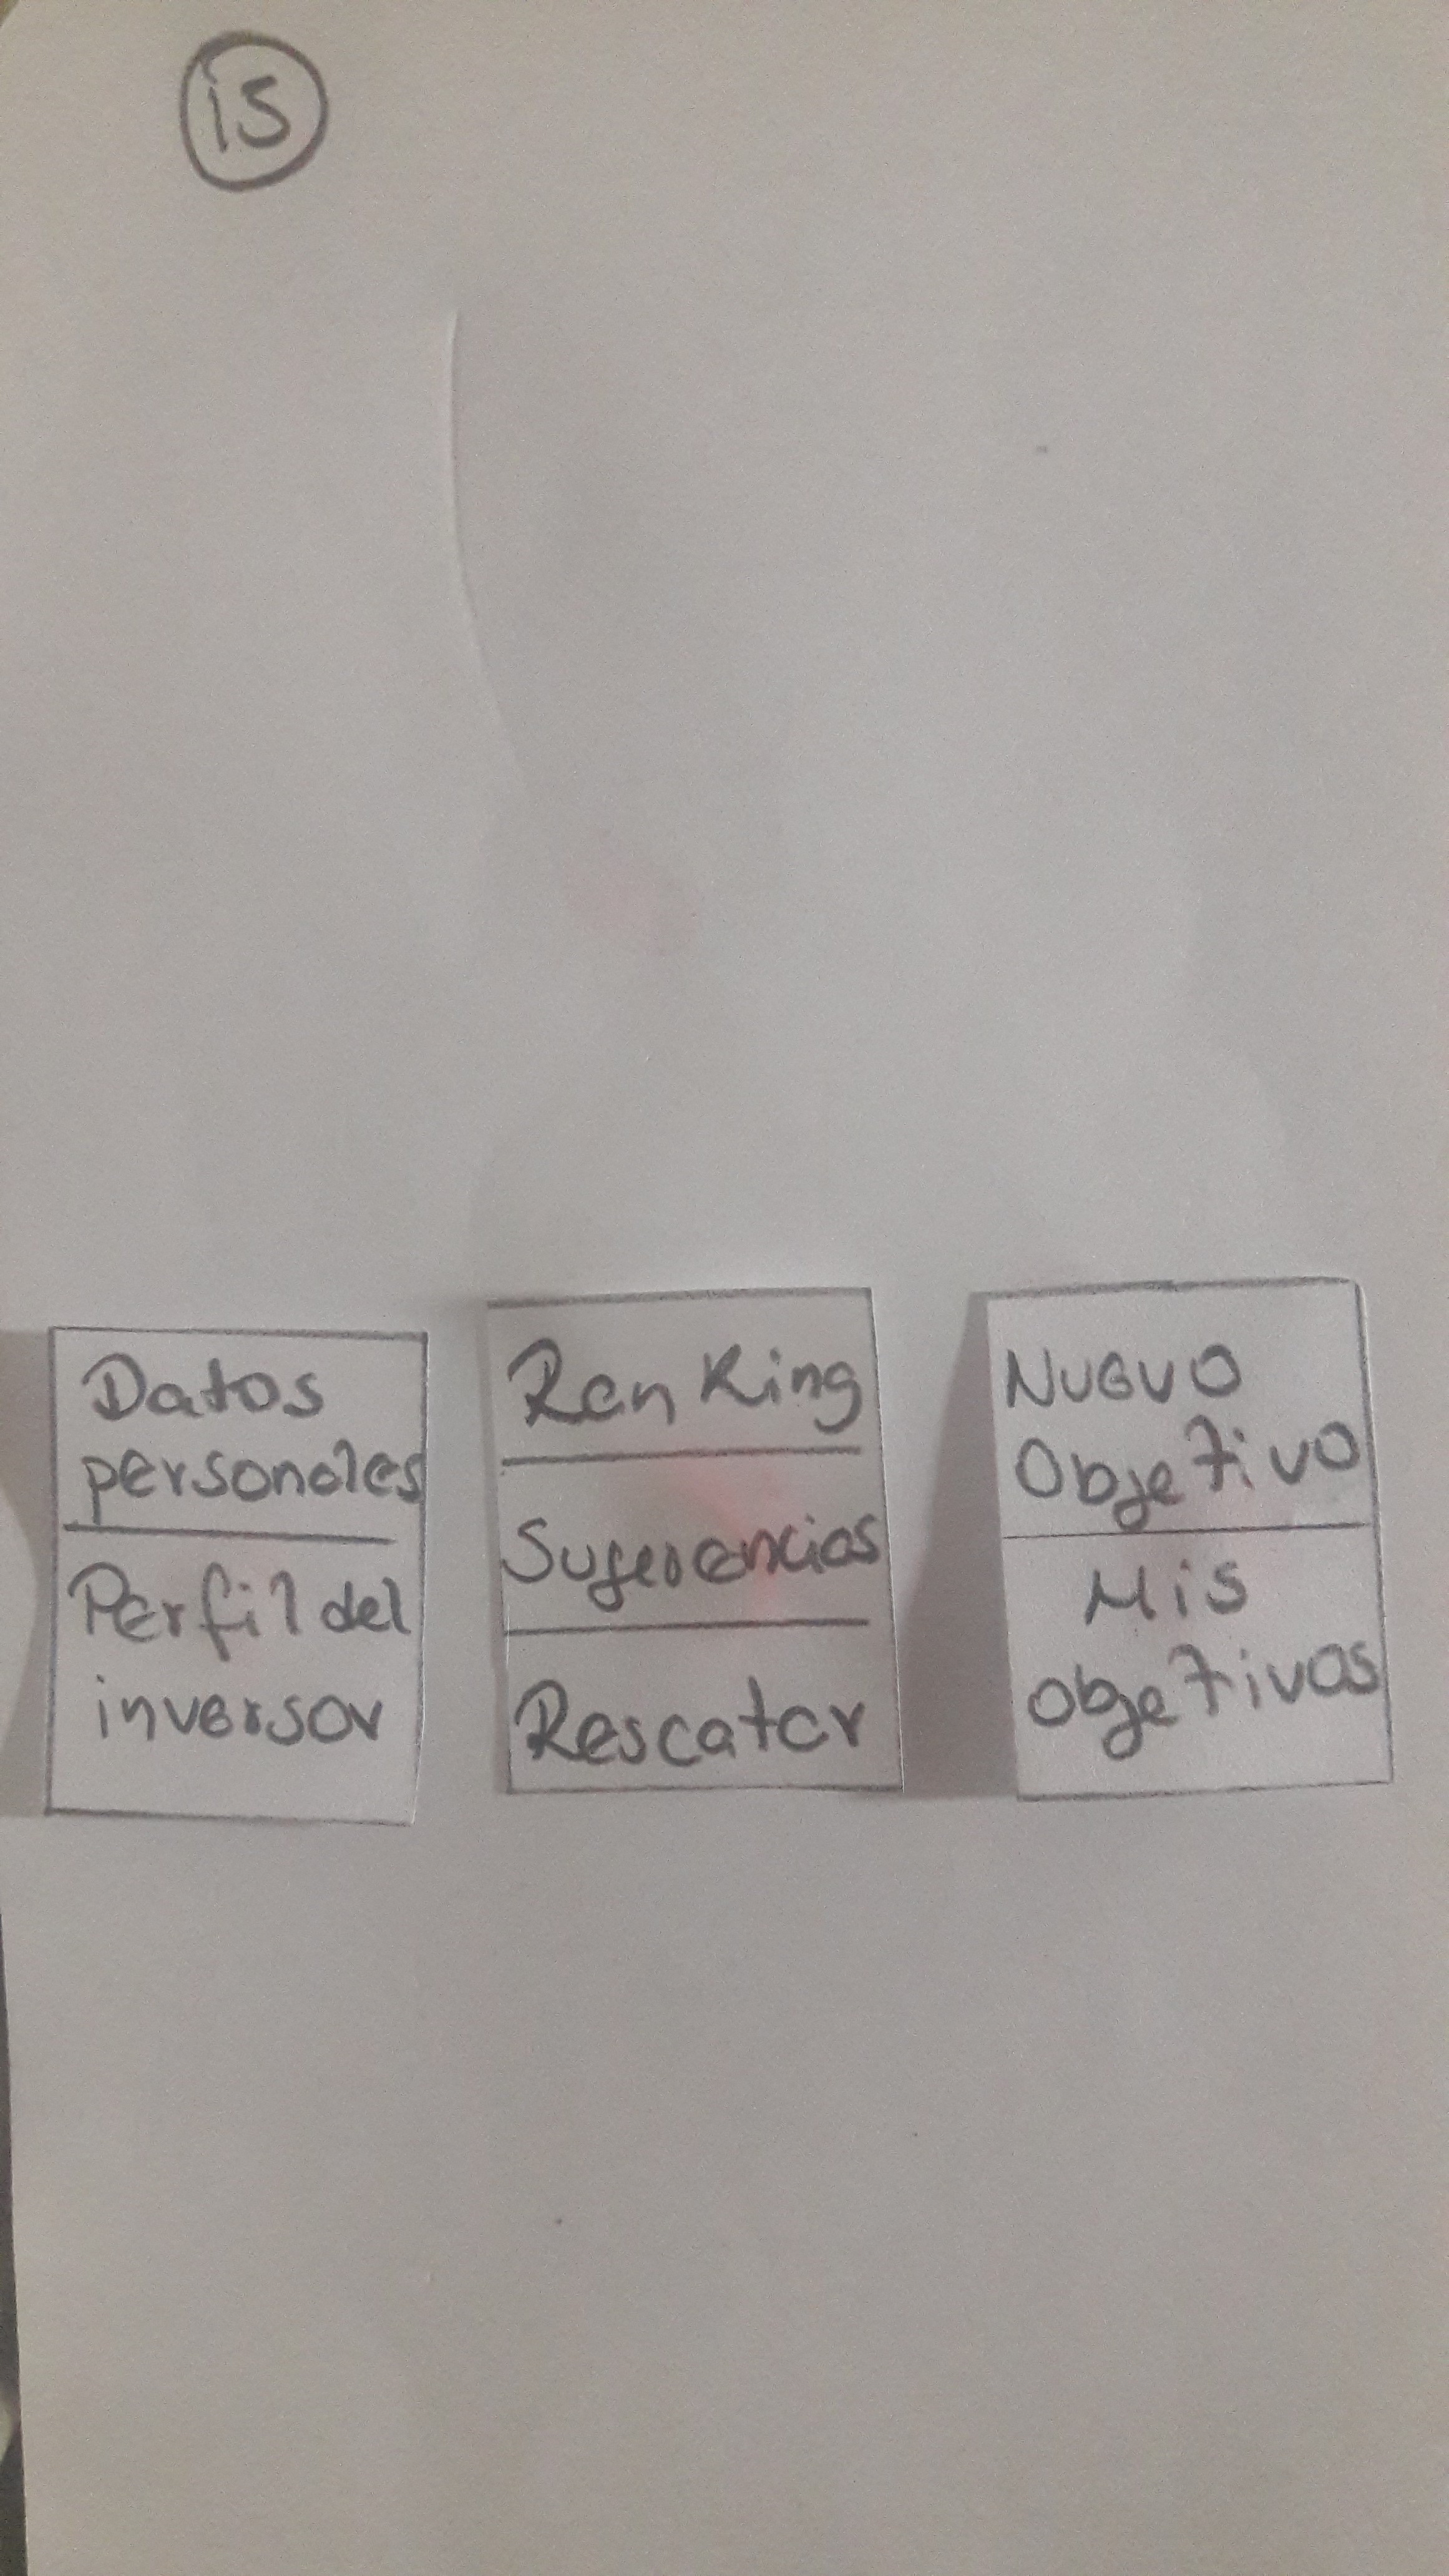 15
Datos
personales
Perfil del
inversor
Ranking
Sugerencias
Rescatar
Nuevo
Objetivo
Mis
objetivos